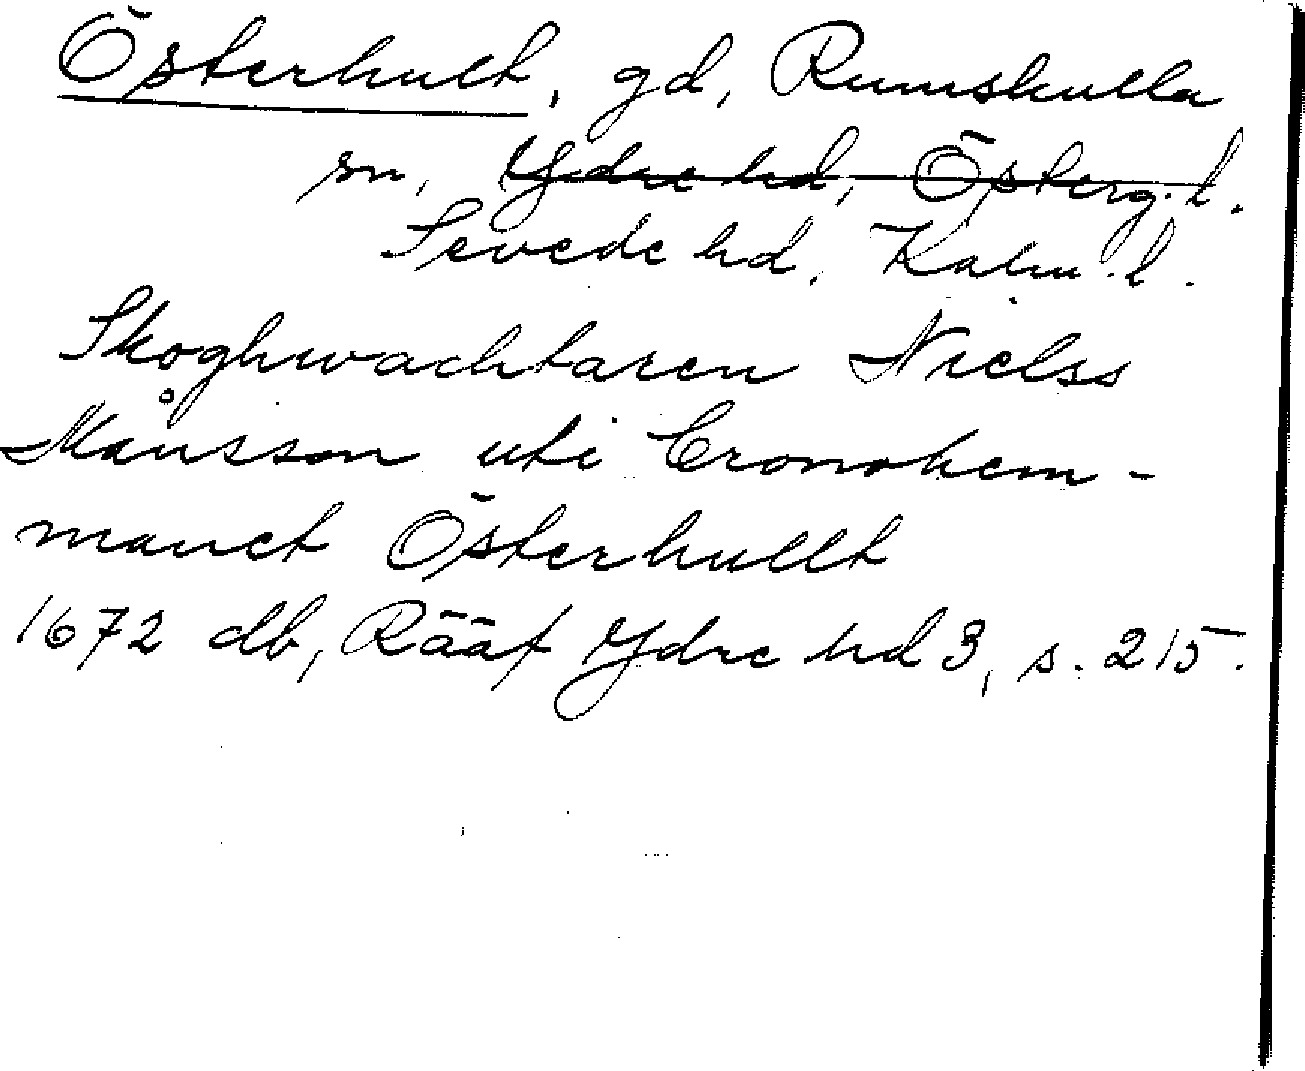 Österhult, gd, Rumskulla
sn, Ydre hd, Österg. l.
Sevede hd, Kalm. l.
Skoghwachtaren Nielss
Månsson uti Cronohem-
manet Österhullt
1672 db, Rääf Ydre hd 3, s. 215.